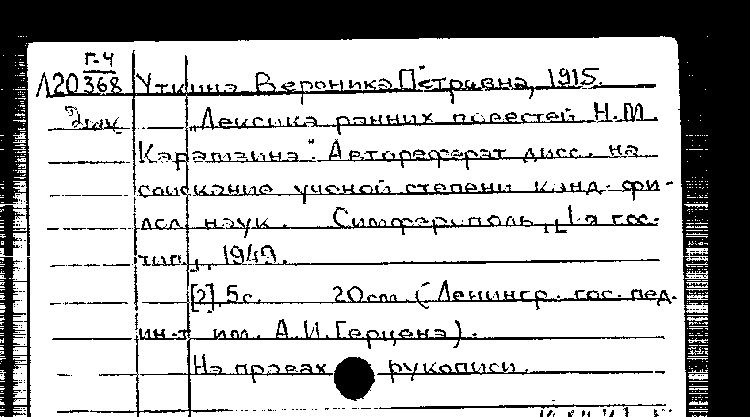 Г-4
Л20368 Уткина Вероника Петровна, 1915.
2 экз „Лексика ранних повестей Н.М.
Карамзина". Автореферат дисс. на
соискание ученой степени канд. фи-
лол. наук. Симферополь, „1-я гос.
тип.", 1949.
[2], 5с. 20см. (Ленингр. гос. пед.
ин-т им. А.И. Герцена).
На правах рукописи.